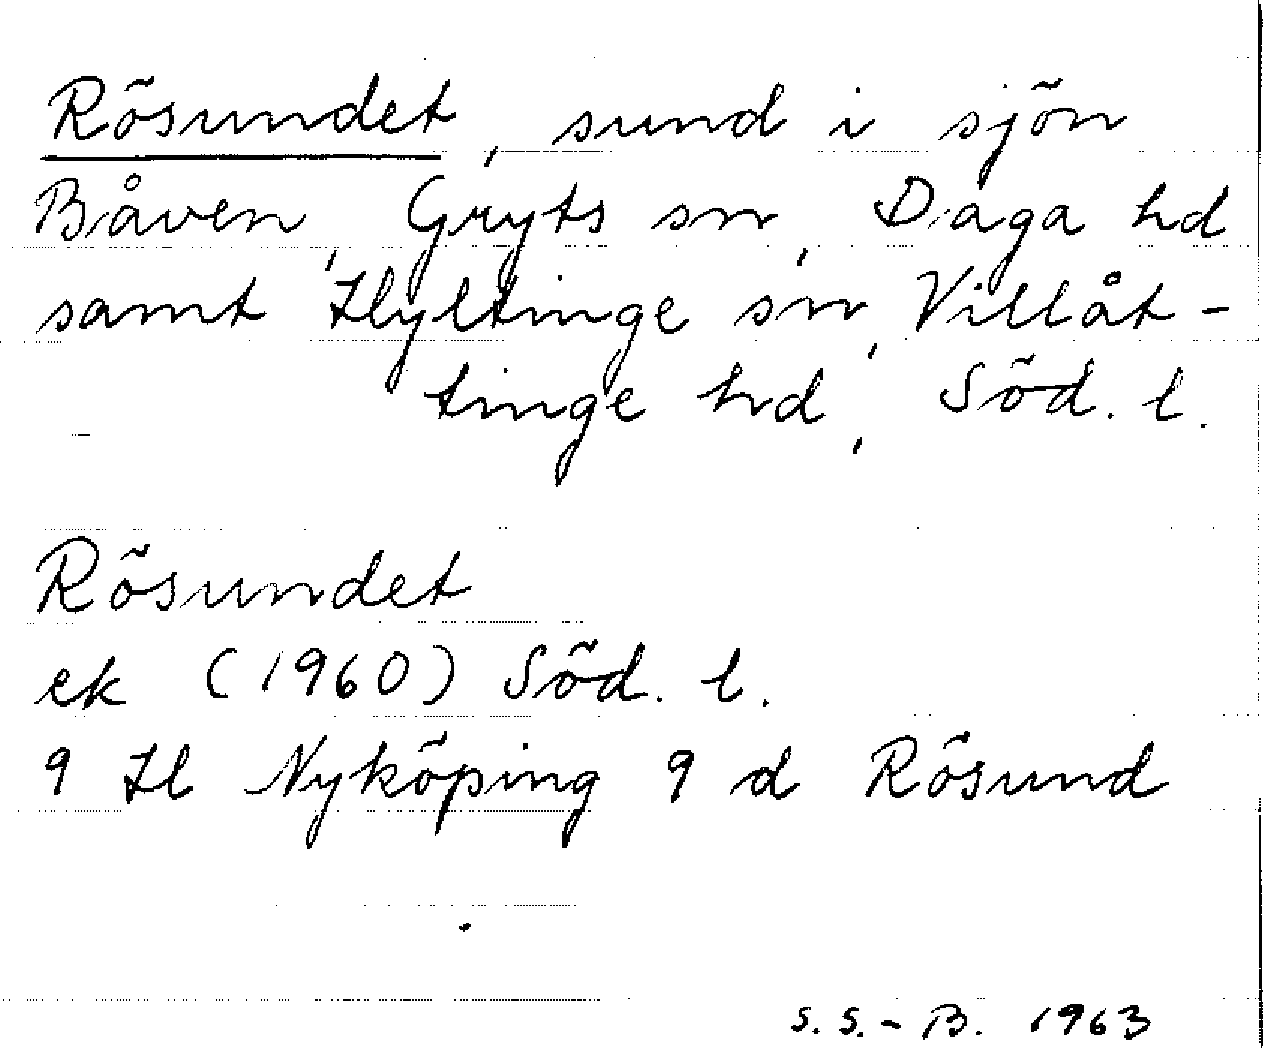 Rösundet, sund i sjön
Båven, Gryts sn, Daga hd
samt Hyltinge sn, Villåt-
tinge hd, Söd. l.
Rösundet
ek (1960) Söd. l.
9 H Nyköping 9 d Rösund
S. S.-B. 1963